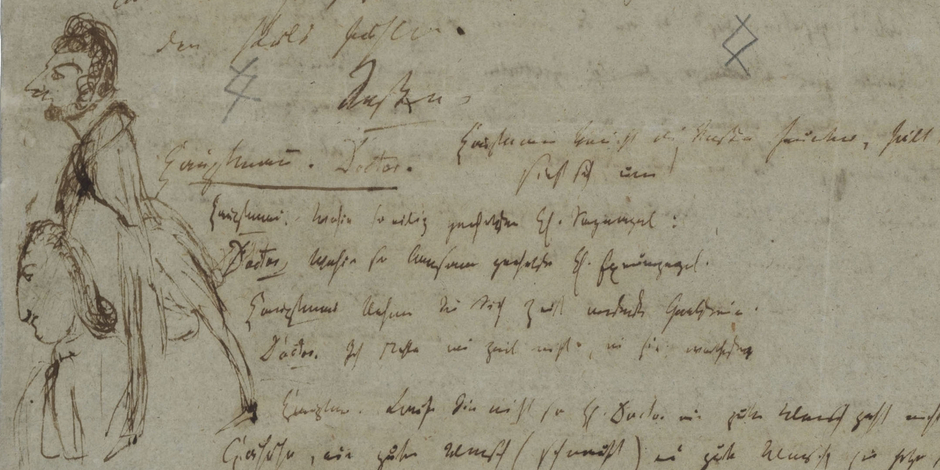 den
Straße
Hauptmann. Doctor. Hauptmann keucht die Straße herunter, hält
sieht sich um
Hauptmann. Wohin so eilig geehrtester H. Sargnagel?
Doctor. Wohin so langsam geehrtester H. Exercirzagel.
Hauptmann Nehmen Sie sich Zeit werthester Grabstein.
Doctor. Ich stehle mei Zeit nicht, wie sie werthester
Hauptm. Laufe Sie nicht so H. Doctor ein guter Mensch geht nicht
ein guter Mensch (schnauft) ein guter Mensch, sie